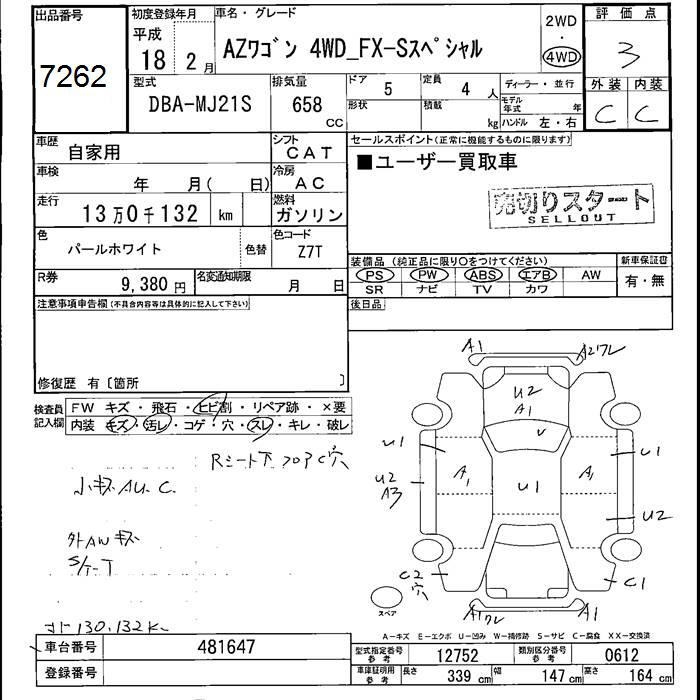 出品番号 初度登録年月 車名・グレード 2WD 評価点
7262 平成 18年 2月 AZワゴン 4WD_FX-Sスペシャル 4WD 3
型式 排気量 ドア 5 定員 4人 ディーラー・並行 外装 内装
DBA-MJ21S 658 CC 形状 積載 kg モデル年式 年 C C
ハンドル 左・右
車歴 自家用 シフト CAT セールスポイント(正常に機能するものに限ります)
車検 年 月( 日) 冷房 AC ■ユーザー買取車
走行 13万0千132 km 燃料 ガソリン 売切りスタート
SELLOUT
色 パールホワイト 色替 色コード Z7T
装備品 (純正品に限り○をつけてください) 新車保証書
R券 9,380円 名変通知期限 月 日 PS PW ABS エアB AW 有・無
SR ナビ TV カワ
注意事項申告欄(不具合内容等は具体的に記入して下さい) 後日品
修復歴 有〔箇所 〕
検査員記入欄 FW キズ・飛石・ヒビ割・リペア跡・×要
内装 キズ・汚レ・コゲ・穴・スレ・キレ・破レ
Rシート下フロアC穴
小キズAU.C.
外AWキズ
S/T-T
130.132K
A1 A2ワレ
U2
A1
U1 U1
U2 A1 U1 A1
A3
U2
C2 C1
穴
スペア
A1ワレ A1
A-キズ E-エクボ U-凹み W-補修跡 S-サビ C-腐食 XX-交換済
車台番号 481647 型式指定番号 参考 12752 類別区分番号 参考 0612
登録番号 車庫証明用 参考 長さ 339 cm 幅 147 cm 高さ 164 cm